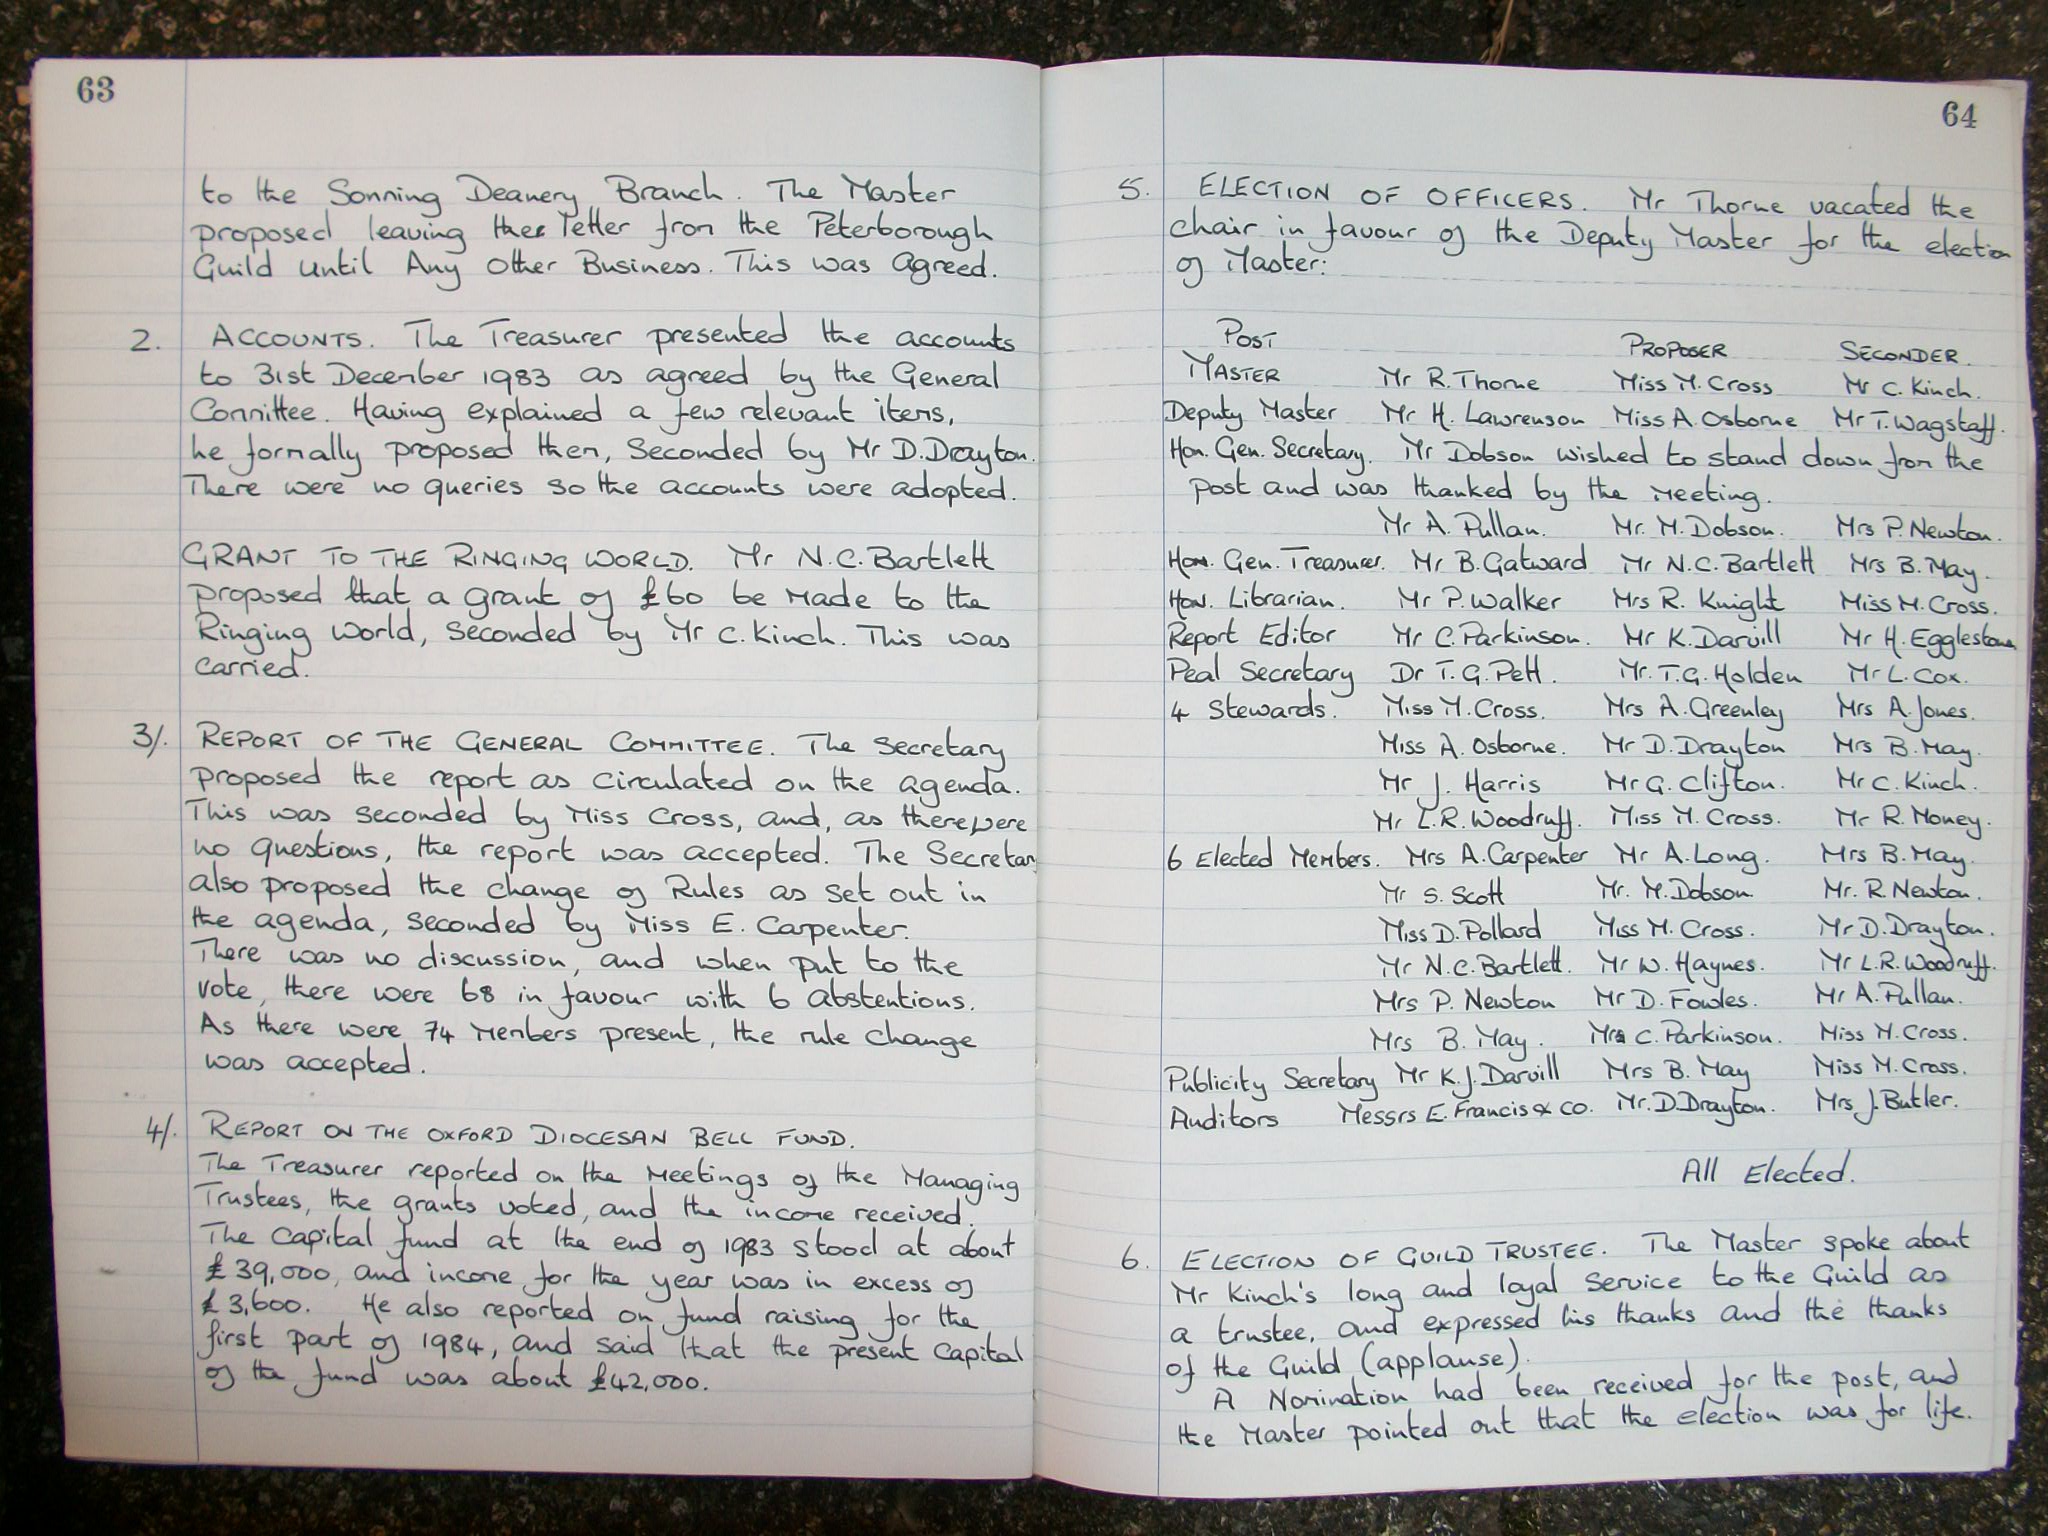 63
to the Sonning Deanery Branch. The Master
proposed leaving the letter from the Peterborough
Guild until Any Other Business. This was agreed.
2. ACCOUNTS. The Treasurer presented the accounts
to 31st December 1983 as agreed by the General
Committee. Having explained a few relevant items,
he formally proposed them, seconded by Mr D. Drayton.
There were no queries so the accounts were adopted.
GRANT TO THE RINGING WORLD. Mr N.C. Bartlett
proposed that a grant of £60 be made to the
Ringing World, seconded by Mr C. Kinch. This was
carried.
3/. REPORT OF THE GENERAL COMMITTEE. The Secretary
proposed the report as circulated on the agenda.
This was seconded by Miss Cross, and, as there were
no questions, the report was accepted. The Secretary
also proposed the change of Rules as set out in
the agenda, seconded by Miss E. Carpenter.
There was no discussion, and when put to the
vote, there were 68 in favour with 6 abstentions.
As there were 74 members present, the rule change
was accepted.
4/. REPORT ON THE OXFORD DIOCESAN BELL FUND.
The Treasurer reported on the meetings of the Managing
Trustees, the grants voted, and the income received.
The capital fund at the end of 1983 stood at about
£39,000, and income for the year was in excess of
£3,600. He also reported on fund raising for the
first part of 1984, and said that the present capital
of the fund was about £42,000.
64
5. ELECTION OF OFFICERS. Mr Thorne vacated the
chair in favour of the Deputy Master for the election
of Master:
POST PROPOSER SECONDER.
MASTER Mr R. Thorne Miss M. Cross Mr C. Kinch.
Deputy Master Mr H. Lawrenson Miss A. Osborne Mr T. Wagstaff.
Hon. Gen. Secretary. Mr Dobson wished to stand down from the
post and was thanked by the meeting.
Mr A. Pullan. Mr. M. Dobson. Mrs P. Newton.
Hon. Gen. Treasurer. Mr B. Gatward Mr N.C. Bartlett Mrs B. May.
Hon. Librarian. Mr P. Walker Mrs R. Knight Miss M. Cross.
Report Editor Mr C. Parkinson. Mr K. Darvill Mr H. Egglestone
Peal Secretary Dr T.G. Pett. Mr. T.G. Holden Mr L. Cox.
4 Stewards. Miss M. Cross. Mrs A. Greenley Mrs A. Jones.
Miss A. Osborne. Mr D. Drayton Mrs B. May.
Mr J. Harris Mr G. Clifton. Mr C. Kinch.
Mr L.R. Woodruff. Miss M. Cross. Mr R. Money.
6 Elected Members. Mrs A. Carpenter Mr A. Long. Mrs B. May.
Mr S. Scott Mr. M. Dobson. Mr. R. Newton.
Miss D. Pollard Miss M. Cross. Mr D. Drayton.
Mr N.C. Bartlett. Mr W. Haynes. Mr L.R. Woodruff.
Mrs P. Newton Mr D. Fowles. Mr A. Pullan.
Mrs B. May. Mr C. Parkinson. Miss M. Cross.
Publicity Secretary Mr K.J. Darvill Mrs B. May Miss M. Cross.
Auditors Messrs E. Francis & Co. Mr. D. Drayton. Mrs J. Butler.
All Elected.
6. ELECTION OF GUILD TRUSTEE. The Master spoke about
Mr Kinch's long and loyal service to the Guild as
a trustee, and expressed his thanks and the thanks
of the Guild (applause).
A Nomination had been received for the post, and
the Master pointed out that the election was for life.